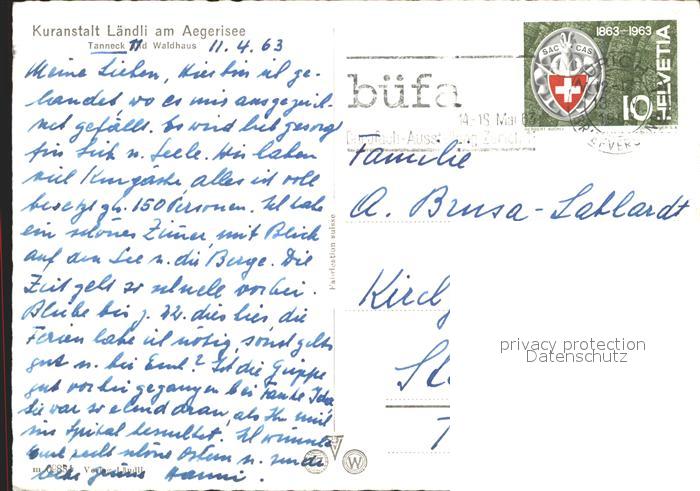 Kuranstalt Ländli am Aegerisee
Tanneck und Waldhaus 11.4.63
Meine Lieben, Hier bin ich ge-
landet wo es mir ausgezeich-
net gefällt. Es wird hier gesorgt
für Leib u. Seele. Wir haben
viel Kurgäste, alles ist voll
besetzt zu. 150 Personen. Ich habe
ein schönes Zimmer, mit Blick
auf den See u. die Berge. Die
Zeit geht so schnell vorbei.
Bleibe bis z. 22. dies bis die
Ferien habe ich nötig, sonst gehts
gut u. bei Euch? Ist die Grippe
gut vorbei gegangen bei Tante Ida
Sie war so elend dran, als Ihr mich
im Spital besuchtet. Ich wünsche
Euch recht schöne Ostern u. sende
liebe Grüsse Hanni
Verlag Ländli
Farbfestion suisse
büfa
14.-18. Mai 63
Bürofach-Ausstellung Zürich
1863-1963
SAC CAS
10
HELVETIA
Familie
A. Brusa-Lablardt
Kirch
St
privacy protection
Datenschutz
W